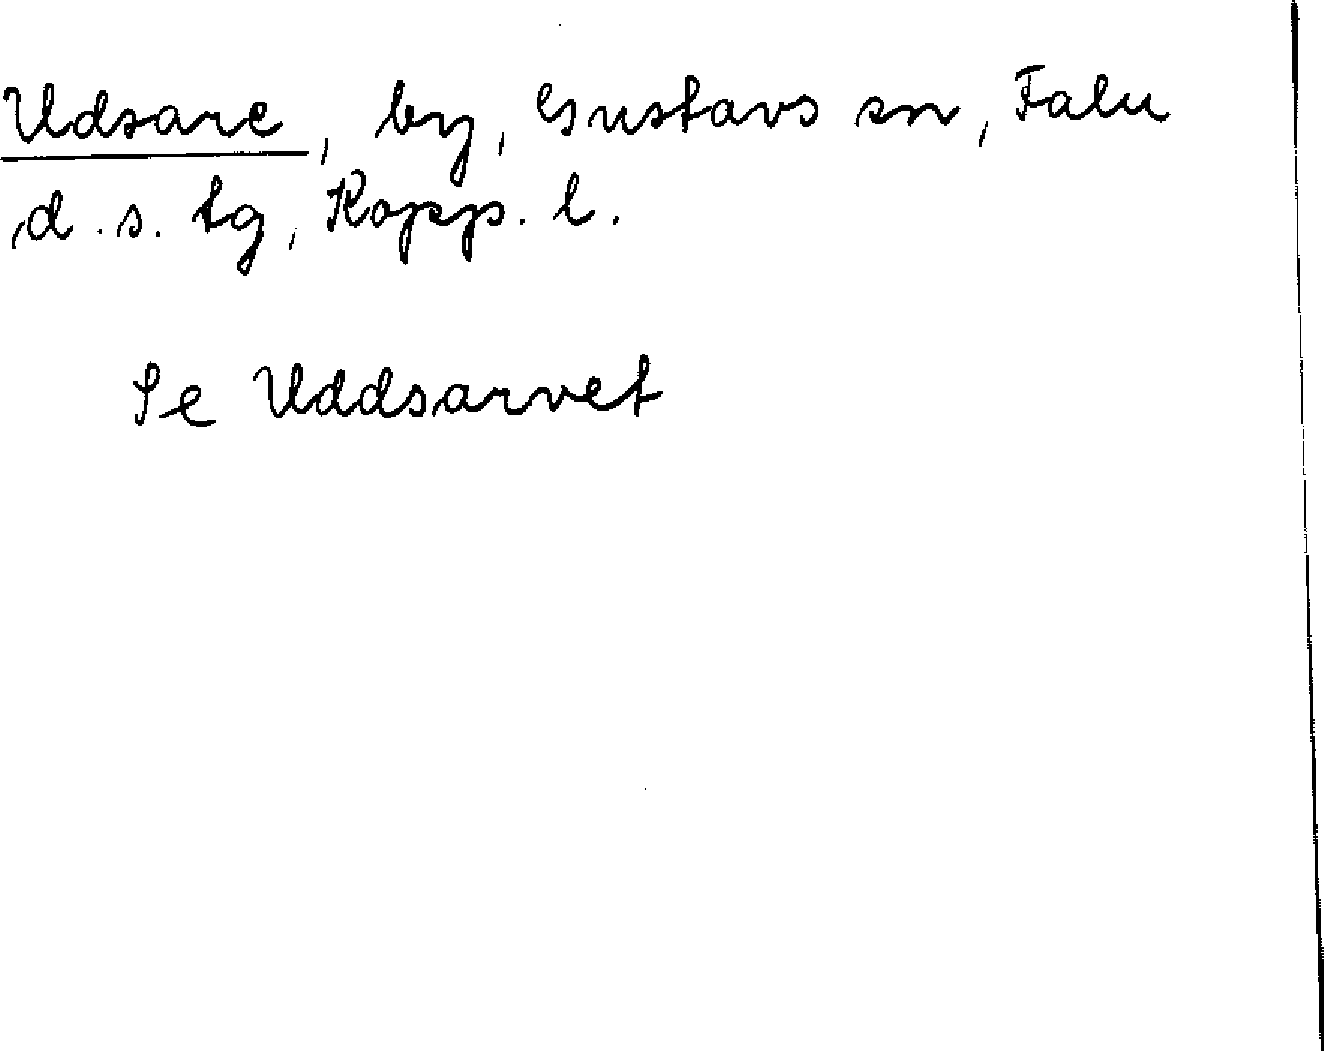 Udsare, by, Gustavs sn, Falu
d. s. tg, Kopp. l.
Se Uddsarvet